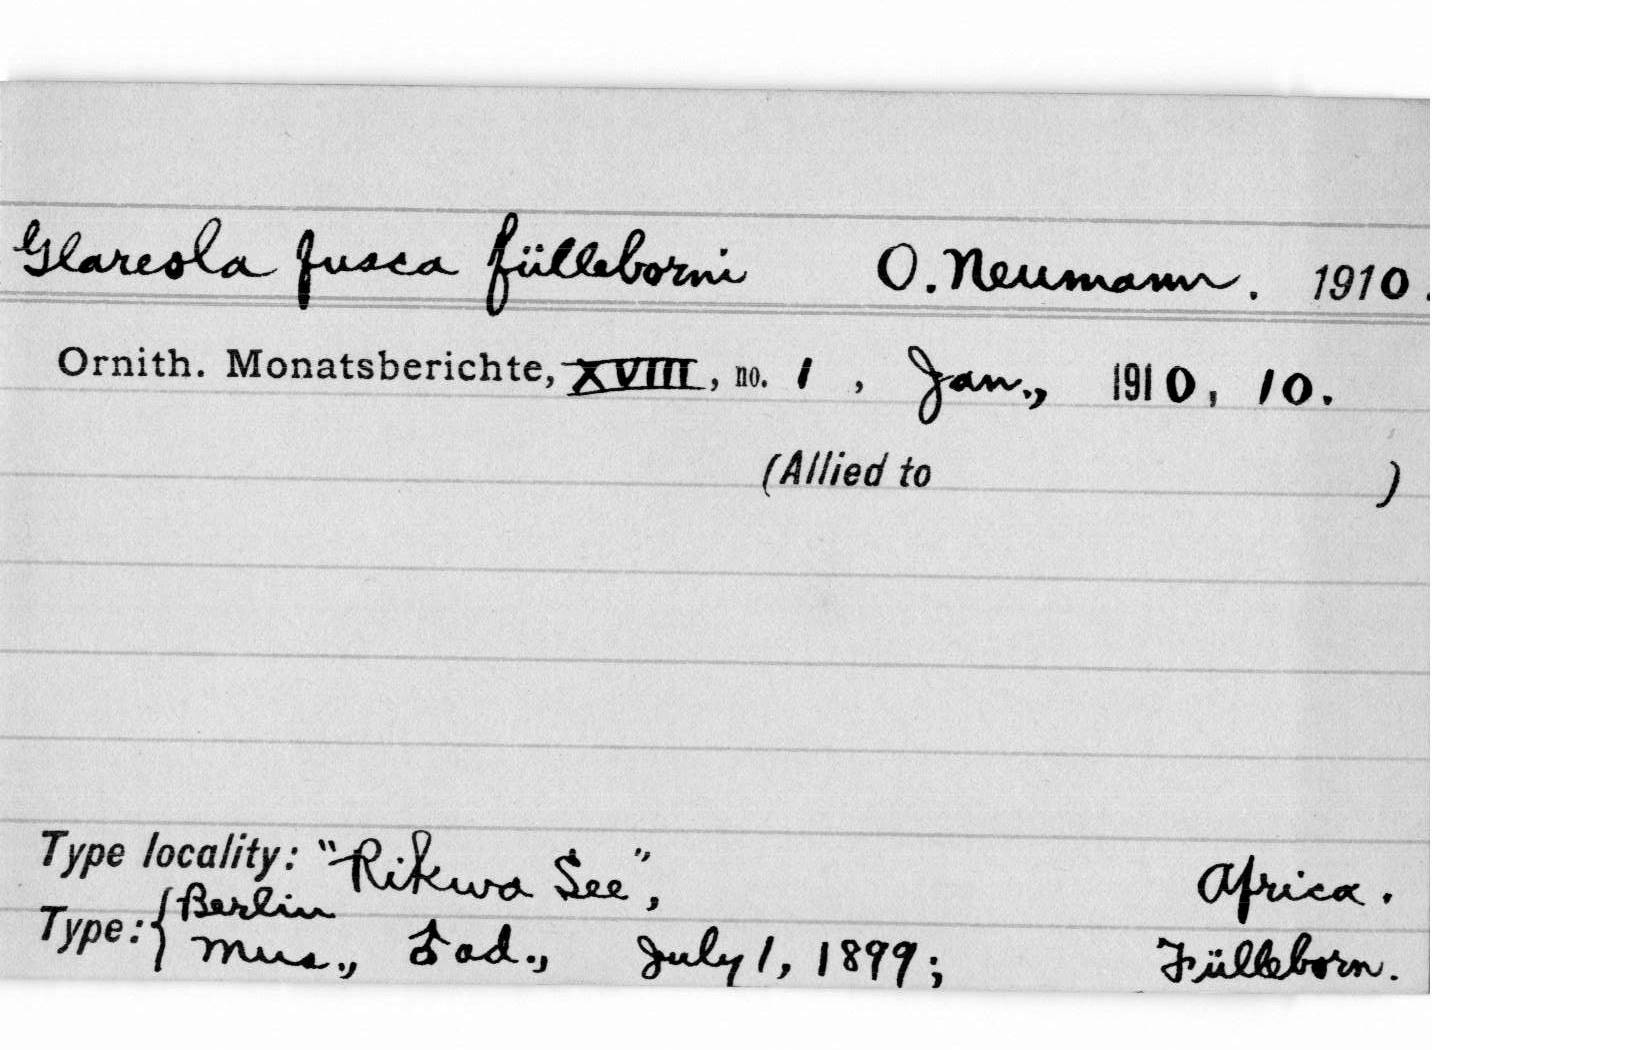 Glareola fusca fülleborni O. Neumann. 1910.
Ornith. Monatsberichte, XVIII, no. 1, Jan., 1910, 10.
(Allied to )
Type locality: "Rikwa See", Africa.
Type: { Berlin
Mus., ad., July 1, 1899; Fülleborn.